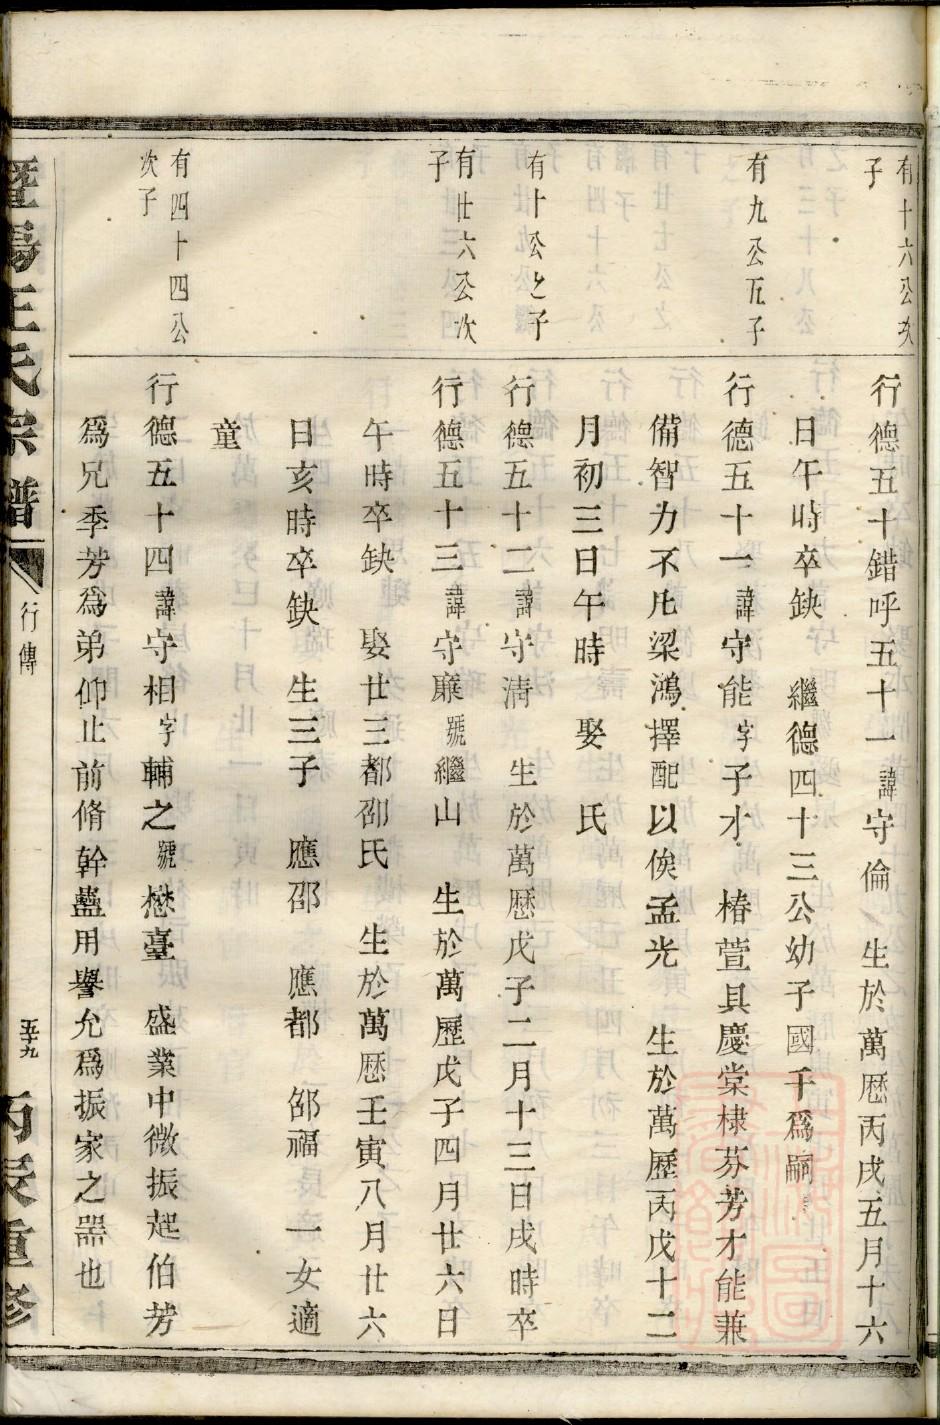 有十六公次
子
行德五十錯呼五十一諱守倫 生於萬厯丙戌五月十六
日午時卒缺 繼德四十三公幼子國千爲嗣
有九公五子
行德五十一諱守能字子才 椿萱具慶棠棣芬芳才能兼
備智力不凡梁鴻擇配以俟孟光 生於萬歷丙戌十二
月初三日午時 娶 氏
有十公之子
行德五十二諱守淸 生於萬歷戊子二月十三日戌時卒
有廿六公次
子
行德五十三諱守廉號繼山 生於萬歷戊子四月廿六日
午時卒缺 娶廿三都邵氏 生於萬厯壬寅八月廿六
日亥時卒缺 生三子 應邵 應都 邵福 一女適
童
有四十四公
次子
行德五十四諱守相字輔之號懋臺 盛業中微振起伯芳
爲兄季芳爲弟仰止前脩幹蠱用譽允爲振家之噐也
暨陽王氏宗譜
行傳
五十九
丙辰重修